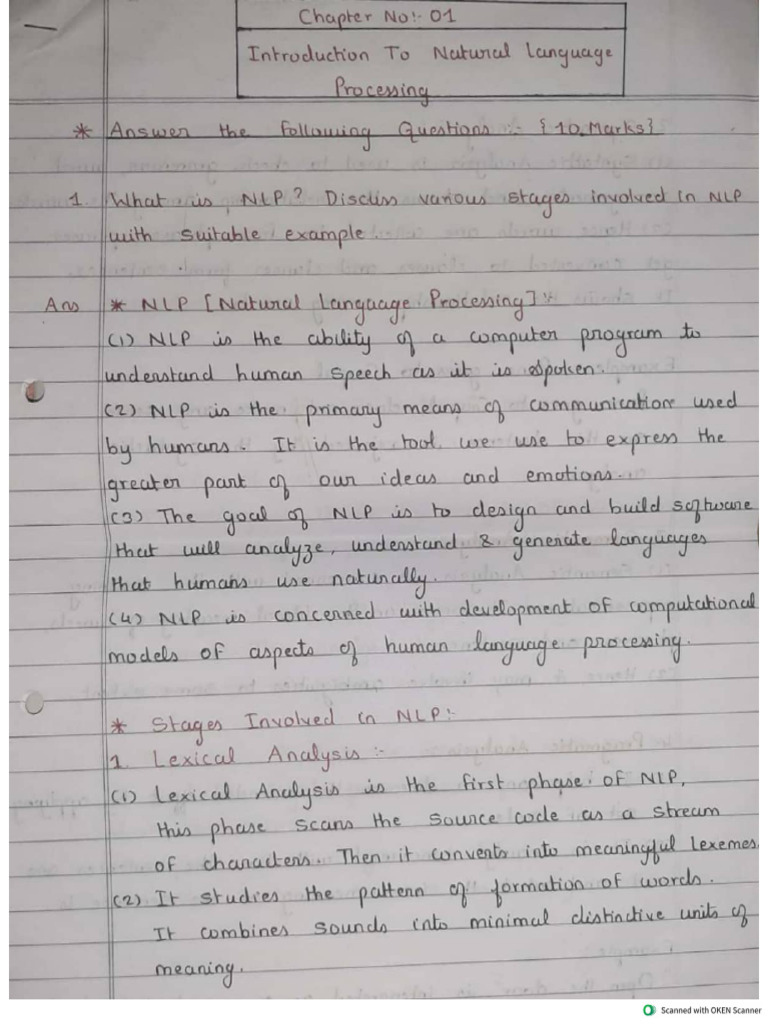 Chapter No:- 01
Introduction To Natural Language
Processing
* Answer the following Questions :- {10 Marks}
1. What is NLP? Discuss various stages involved in NLP
with suitable example.
Ans * NLP [Natural Language Processing] :-
(1) NLP is the ability of a computer program to
understand human speech as it is spoken.
(2) NLP is the primary means of communication used
by humans. It is the tool we use to express the
greater part of our ideas and emotions.
(3) The goal of NLP is to design and build software
that will analyze, understand & generate languages
that humans use naturally.
(4) NLP is concerned with development of computational
models of aspects of human language processing.
* Stages Involved in NLP:-
1. Lexical Analysis :-
(1) Lexical Analysis is the first phase of NLP,
this phase scans the source code as a stream
of characters. Then it converts into meaningful lexemes.
(2) It studies the pattern of formation of words.
It combines sounds into minimal distinctive units of
meaning.
Scanned with OKEN Scanner